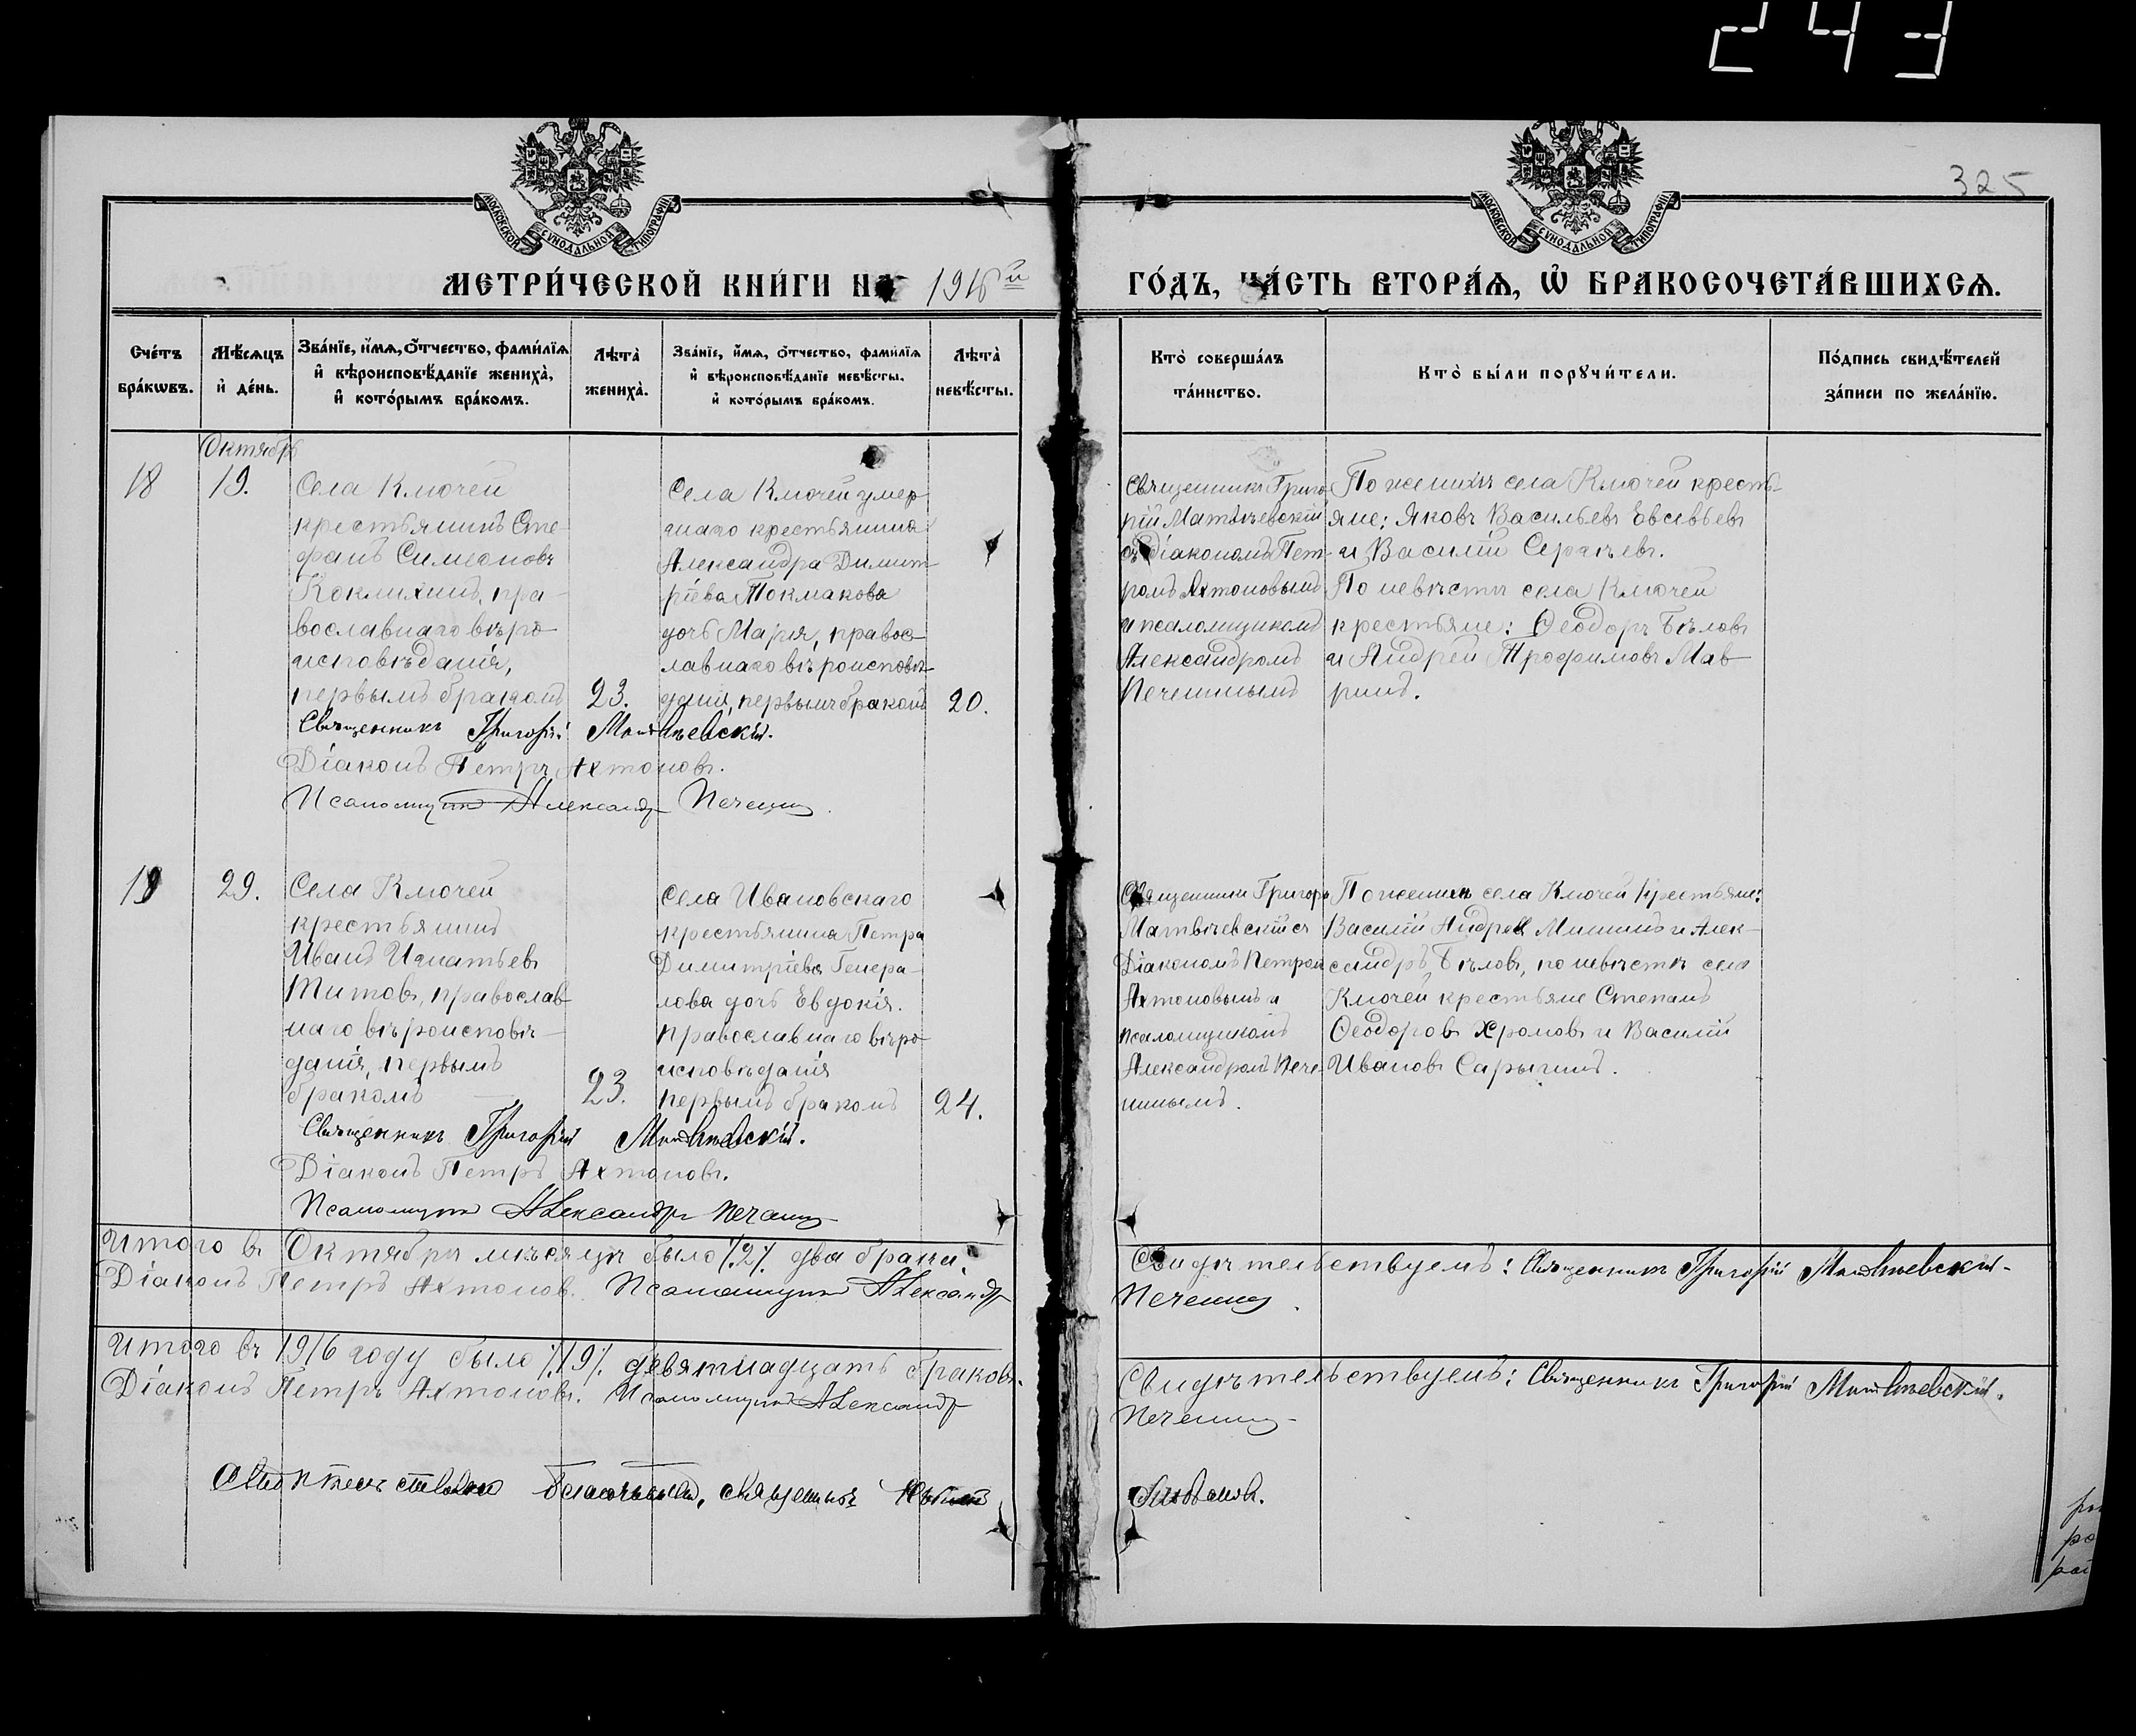 243
325
МОСКОВСКОЙ СѴНОДАЛЬНОЙ ТИПОГРАФІИ
МОСКОВСКОЙ СѴНОДАЛЬНОЙ ТИПОГРАФІИ
МЕТРИ́ЧЕСКОЙ КНИ́ГИ НА 1916й ГО́ДЪ, ЧА́СТЬ ВТОРА́Я, Ѽ БРАКОСОЧЕТА́ВШИХСЯ.
Сче́тъ
бра́кѡвъ.
Мѣ́сяцъ
и҆ де́нь.
Зва́нїе, и҆́мя, ѻ҆́тчество, фами́лїя
и҆ вѣроисповѣ́данїе жениха̀,
и҆ кото́рымъ бра́комъ.
Лѣта̀
жениха̀.
Зва́нїе, и҆́мя, ѻ҆́тчество, фами́лїя
и҆ вѣроисповѣ́данїе невѣ́сты,
и҆ кото́рымъ бра́комъ.
Лѣта̀
невѣ́сты.
Кто̀ соверша́лъ
та́инство.
Кто̀ бы́ли порꙋчи́тели.
По́дпись свидѣ́телей
за́писи по жела́нїю.
Октябрь
18
19.
Села Ключей
крестьянинъ Сте-
фанъ Симеоновъ
Коклихинъ, пра-
вославнаго вѣро-
исповѣданія,
первымъ бракомъ
23.
Села Ключей умер-
шаго крестьянина
Александра Димит-
ріева Токмакова
дочь Марія, правос-
лавнаго вѣроисповѣ-
данія, первымъ бракомъ
20.
Священникъ Григо-
рій Матвѣевскій
съ діакономъ Пет-
ромъ Ахтоновымъ
и псаломщикомъ
Александромъ
Печенинымъ
По женихѣ села Ключей кресть-
яне: Яковъ Васильевъ Евсевьевъ
и Василій Сергѣевъ.
По невѣстѣ села Ключей
крестьяне: Ѳеодоръ Бѣловъ
и Андрей Трофимовъ Мав-
ринъ.
Священникъ Григорій Матвѣевскій.
Діаконъ Петръ Ахтоновъ.
Псаломщикъ Александръ Печенинъ
19
29.
Села Ключей
крестьянинъ
Иванъ Игнатьевъ
Титовъ, православ-
наго вѣроисповѣ-
данія, первымъ
бракомъ
23.
Села Ивановскаго
крестьянина Петра
Димитріева Генера-
лова дочь Евдокія.
православнаго вѣро-
исповѣданія
первымъ бракомъ
24.
Священникъ Григорій
Матвѣевскій съ
Діакономъ Петромъ
Ахтоновымъ и
псаломщикомъ
Александромъ Пече-
нинымъ.
По женихѣ села Ключей крестьяне:
Василій Андреевъ Мишинъ и Алек-
сандръ Бѣловъ, по невѣстѣ села
Ключей крестьяне Степанъ
Ѳеодоровъ Хромовъ и Василій
Ивановъ Сарычинъ.
Священникъ Григорій Матвѣевскій.
Діаконъ Петръ Ахтоновъ.
Псаломщикъ Александръ Печенинъ
Итого въ Октябрѣ мѣсяцѣ было ./.2./. два брака. Свидѣтельствуемъ: Священникъ Григорій Матвѣевскій.
Діаконъ Петръ Ахтоновъ. Псаломщикъ Александръ Печенинъ.
Итого въ 1916 году было ./.19./. девятнадцать браковъ. Свидѣтельствуемъ: Священникъ Григорій Матвѣевскій.
Діаконъ Петръ Ахтоновъ. Псаломщикъ Александръ Печенинъ
священникъ